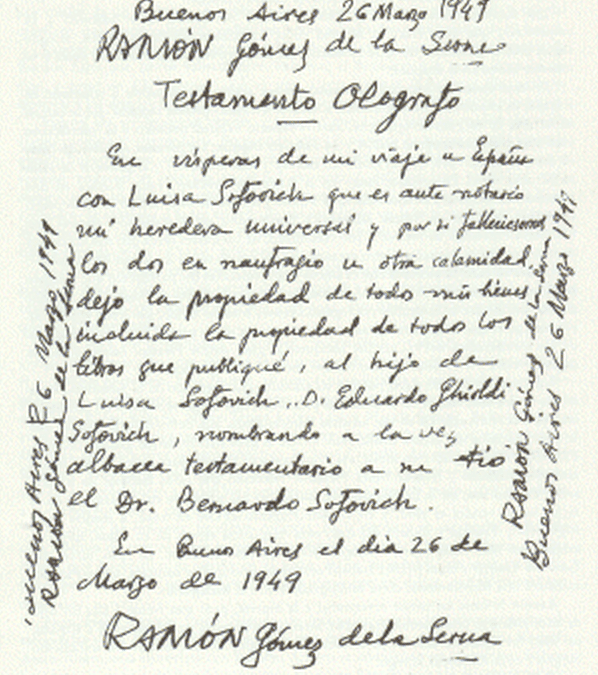 Buenos Aires 26 Marzo 1949
RAMÓN Gómez de la Serna
Testamento Ológrafo
En vísperas de mi viaje a España
con Luisa Sofovich que es ante notario
mi heredera universal y por si falleciesemos
los dos en naufragio u otra calamidad,
dejo la propiedad de todos mis bienes,
incluida la propiedad de todos los
libros que publiqué, al hijo de
Luisa Sofovich, D. Eduardo Ghioldi
Sofovich, nombrando a la vez
albacea testamentario a su tío
el Dr. Bernardo Sofovich.
En Buenos Aires el dia 26 de
Marzo de 1949
RAMÓN Gómez de la Serna
Buenos Aires 26 Marzo 1949
RAMÓN Gómez de la Serna
RAMÓN Gómez de la Serna
Buenos Aires 26 Marzo 1949